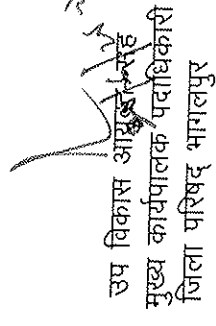 उप विकास आयुक्त-सह
मुख्य कार्यपालक पदाधिकारी
जिला परिषद् भागलपुर